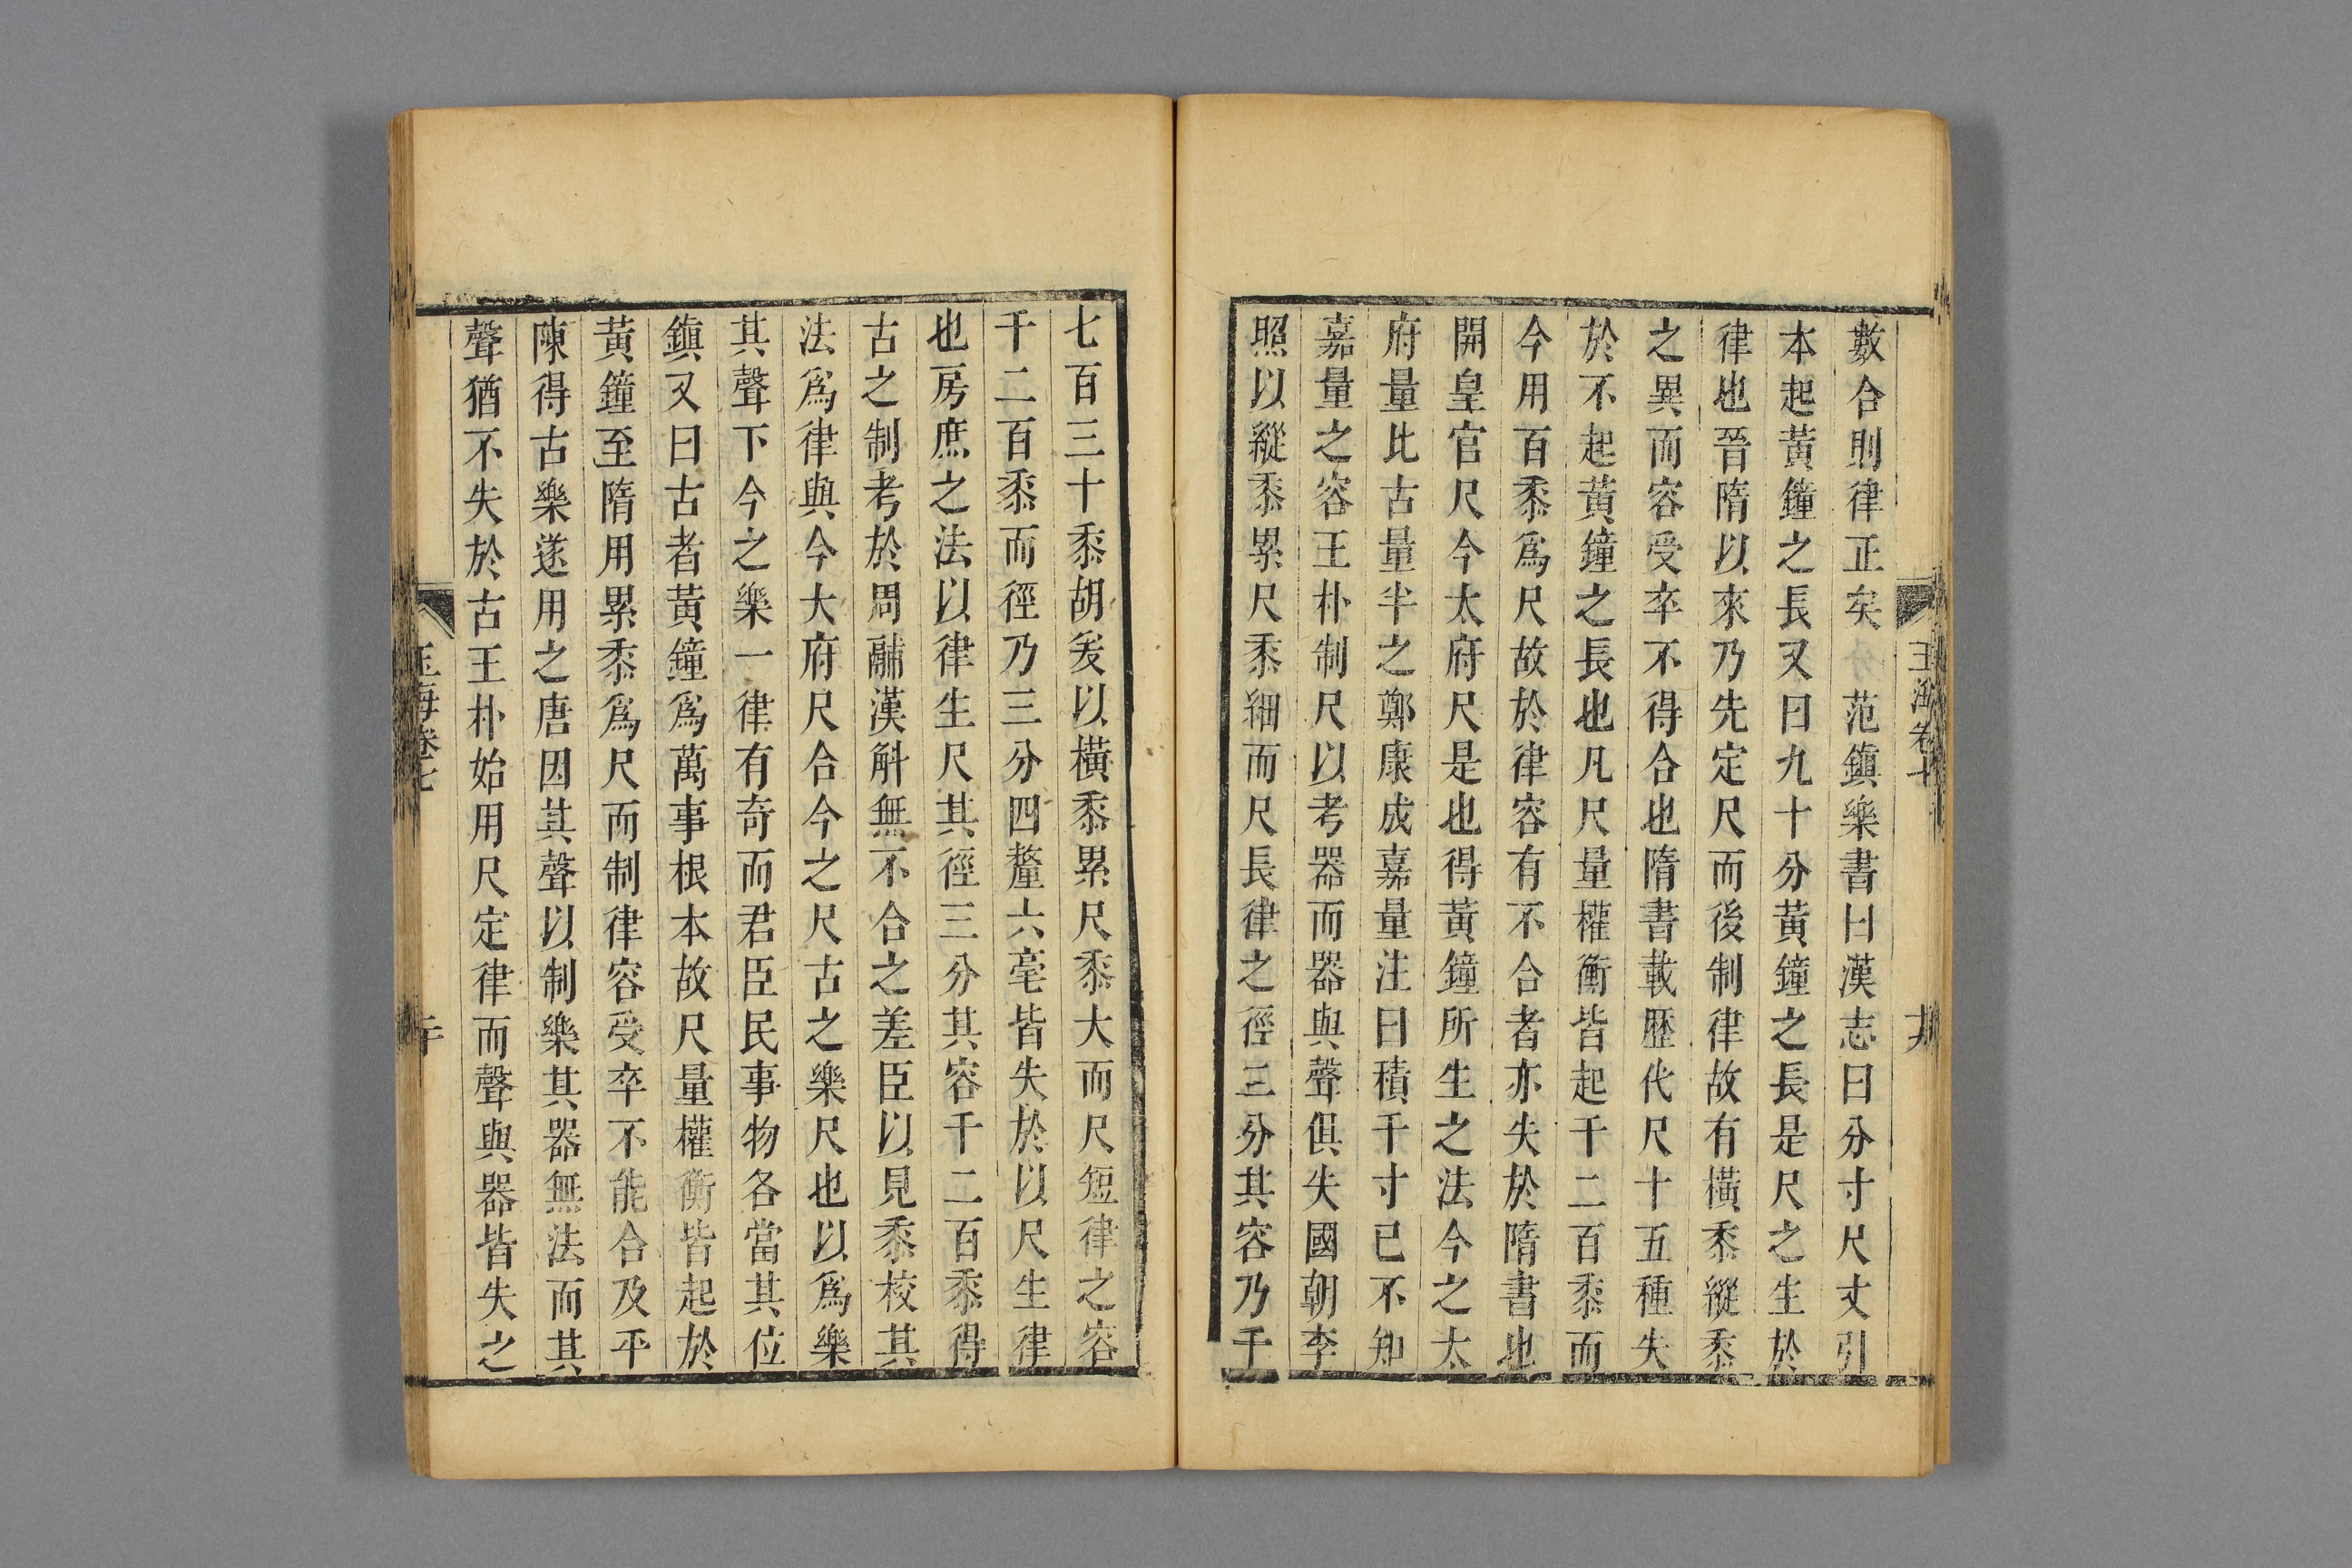 數合則律正矣分范鎮樂書曰漢志曰分寸尺丈引
本起黃鐘之長又曰九十分黃鐘之長是尺之生於
律也晉隋以來乃先定尺而後制律故有橫黍縱黍
之異而容受卒不得合也隋書載歷代尺十五種失
於不起黃鐘之長也凡尺量權衡皆起千二百黍而
今用百黍爲尺故於律容有不合者亦失於隋書也
開皇官尺今太府尺是也得黃鐘所生之法今之太
府量比古量半之鄭康成嘉量注曰積千寸已不知
嘉量之容王朴制尺以考器而器與聲俱失國朝李
照以縱黍累尺黍細而尺長律之徑三分其容乃千
七百三十黍胡爰以橫黍累尺黍大而尺短律之容
千二百黍而徑乃三分四釐六毫皆失於以尺生律
也房庶之法以律生尺其徑三分其容千二百黍得
古之制考於周鬴漢斛無不合之差臣以見黍校其
法爲律與今大府尺合今之尺古之樂尺也以爲樂
其聲下今之樂一律有奇而君臣民事物各當其位
鎮又曰古者黃鐘爲萬事根本故尺量權衡皆起於
黃鐘至隋用累黍爲尺而制律容受卒不能合及平
陳得古樂遂用之唐因其聲以制樂其器無法而其
聲猶不失於古王朴始用尺定律而聲與器皆失之
玉海卷七